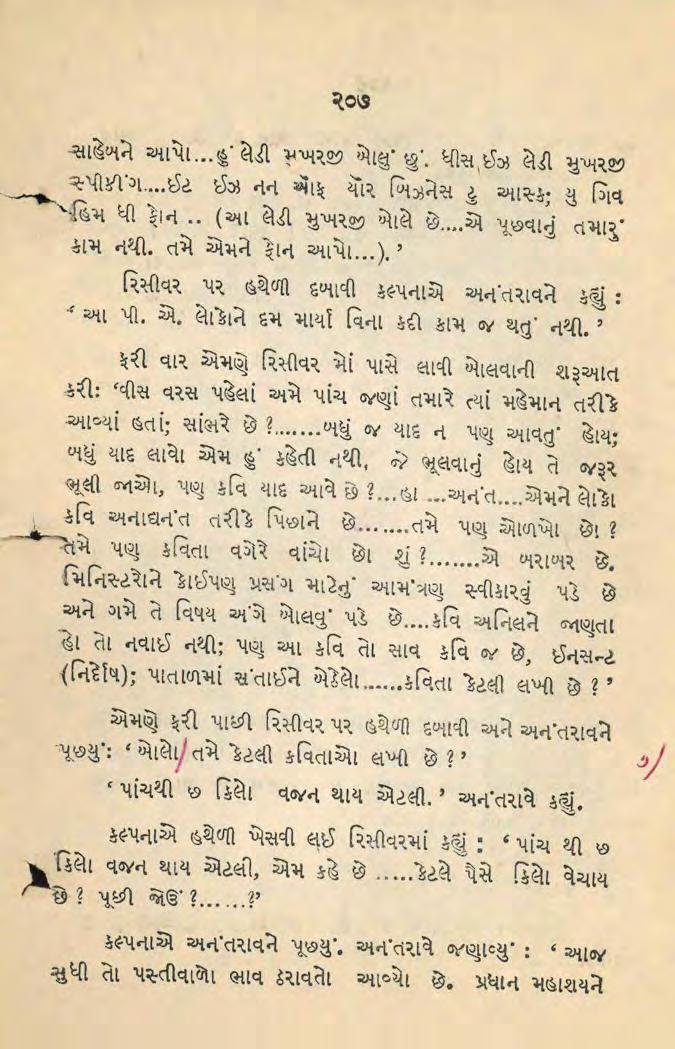 ૨૦૭
સાહેબને આપો...હું લેડી મુખરજી બોલું છું. ધીસ ઈઝ લેડી મુખરજી
સ્પીકીંગ....ઈટ ઈઝ નન ઑફ યૉર બિઝનેસ ટુ આસ્ક; યુ ગિવ
હિમ ધી ફોન .. (આ લેડી મુખરજી બોલે છે....એ પૂછવાનું તમારું
કામ નથી. તમે એમને ફોન આપો...).’
રિસીવર પર હથેળી દબાવી કલ્પનાએ અનંતરાવને કહ્યું :
‘ આ પી. એ. લોકોને દમ માર્યા વિના કદી કામ જ થતું નથી. ’
ફરી વાર એમણે રિસીવર મોં પાસે લાવી બોલવાની શરૂઆત
કરી: ‘વીસ વરસ પહેલાં અમે પાંચ જણાં તમારે ત્યાં મહેમાન તરીકે
આવ્યાં હતાં; સાંભરે છે ?.......બધું જ યાદ ન પણ આવતું હોય;
બધું યાદ લાવો એમ હું કહેતી નથી, જે ભૂલવાનું હોય તે જરૂર
ભૂલી જાઓ, પણ કવિ યાદ આવે છે ?...હા ...અનંત....એમને લોકો
કવિ અનાદ્યનંત તરીકે પિછાને છે.......તમે પણ ઓળખો છો ?
તમે પણ કવિતા વગેરે વાંચો છો શું ?.......એ બરાબર છે.
મિનિસ્ટરોને કોઈપણ પ્રસંગ માટેનું આમંત્રણ સ્વીકારવું પડે છે
અને ગમે તે વિષય અંગે બોલવું પડે છે....કવિ અનિલને જાણતા
હો તો નવાઈ નથી; પણ આ કવિ તો સાવ કવિ જ છે, ઈનસન્ટ
(નિર્દોષ); પાતાળમાં સંતાઈને બેઠેલો......કવિતા કેટલી લખી છે ? ’
એમણે ફરી પાછી રિસીવર પર હથેળી દબાવી અને અનંતરાવને
પૂછયું: ‘ બોલો/ તમે કેટલી કવિતાઓ લખી છે ?’ ,/
‘ પાંચથી છ કિલો વજન થાય એટલી. ’ અનંતરાવે કહ્યું.
કલ્પનાએ હથેળી ખેસવી લઈ રિસીવરમાં કહ્યું : ‘ પાંચ થી છ
કિલો વજન થાય એટલી, એમ કહે છે .....કેટલે પૈસે કિલો વેચાય
છે ? પૂછી જોઉં ?......?’
કલ્પનાએ અનંતરાવને પૂછયું. અનંતરાવે જણાવ્યું : ‘ આજ
સુધી તો પસ્તીવાળો ભાવ ઠરાવતો આવ્યો છે. પ્રધાન મહાશયને